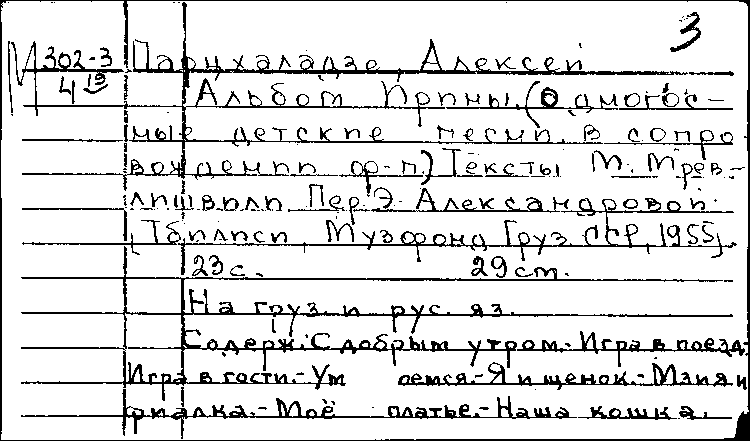 3
М 302-3 Парцхаладзе, Алексей
4 19 Альбом Ирины. (Одногос-
ные детские песни в сопро-
вождении ф-п) Тексты М. Мрев-
лишвили Пер. Э. Александровой.
[Тбилиси, Музфонд Груз. ССР, 1955].
23 с. 29 ст.
На груз. и рус. яз.
Содерж.: С добрым утром.- Игра в поезд.-
Игра в гости.- Ум оемся.- Я и щенок.- Мзия и
фиалка.- Моё платье.- Наша кошка.